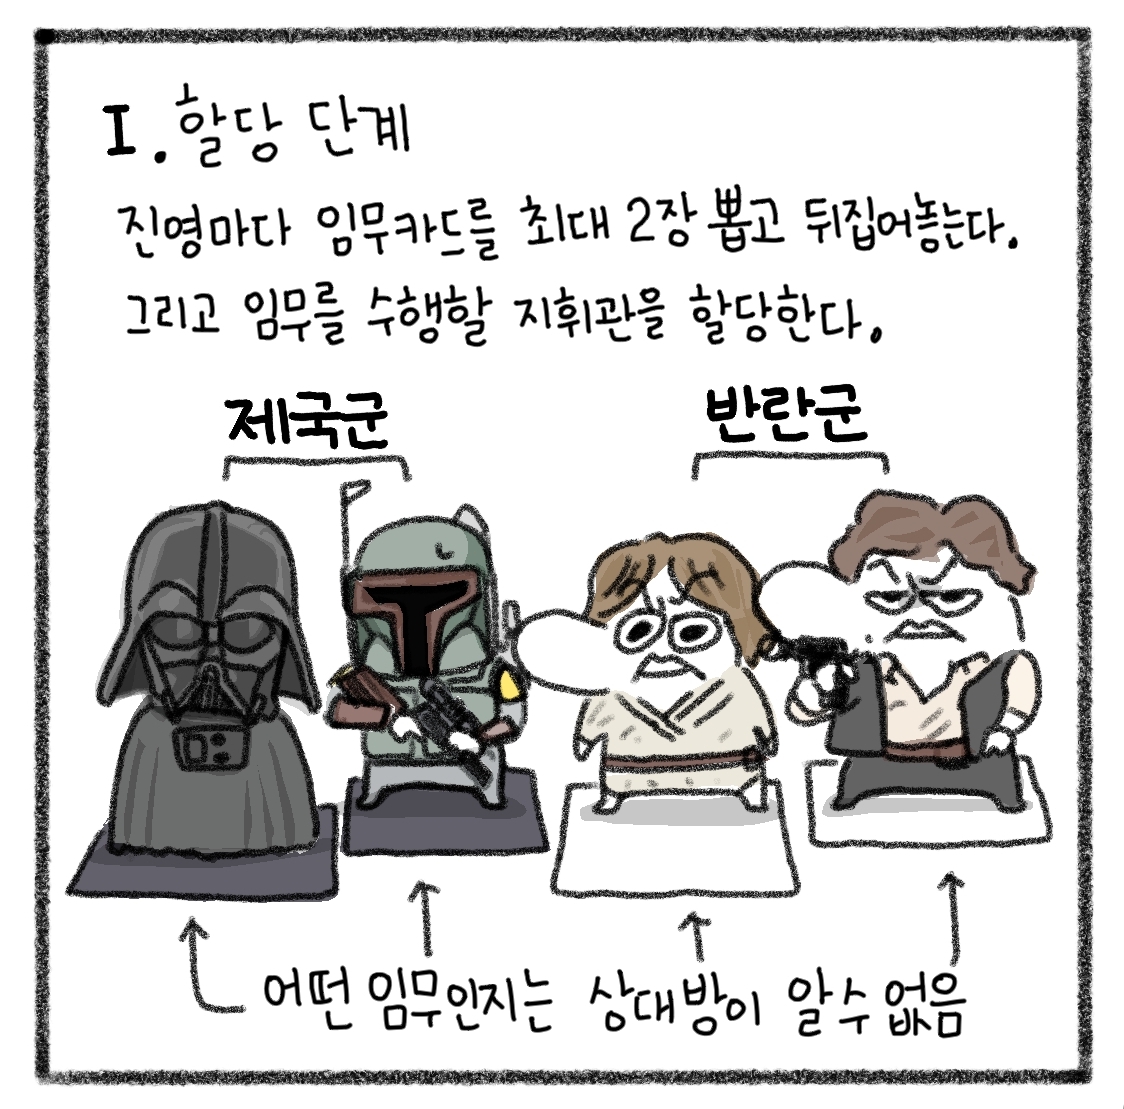 I. 할당 단계
진영마다 임무카드를 최대 2장 뽑고 뒤집어놓는다.
그리고 임무를 수행할 지휘관을 할당한다.
제국군
반란군
어떤 임무인지는 상대방이 알 수 없음